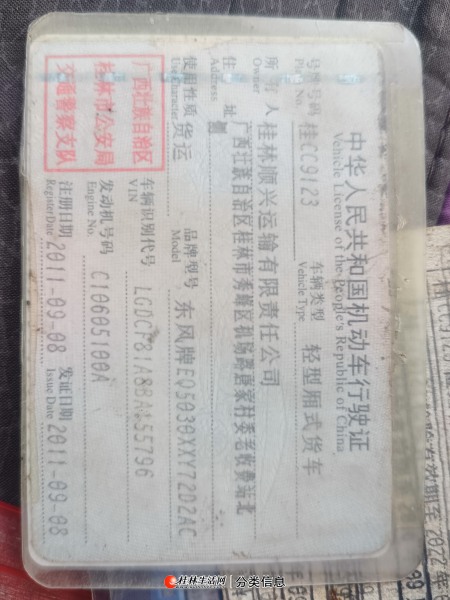 中华人民共和国机动车行驶证
Vehicle License of the People's Republic of China
号牌号码 桂CC9123
Plate No.
车辆类型 轻型厢式货车
Vehicle Type
所有人 桂林顺兴运输有限责任公司
Owner
住址 广西壮族自治区桂林市秀峰区机场路唐家村委老收费站北
Address
侧
使用性质 货运
Use Character
品牌型号 东风牌EQ5030XXY72D2AC
Model
车辆识别代号
VIN
发动机号码 C10605100A
Engine No.
注册日期 2011-09-08
Register Date
发证日期 2011-09-08
Issue Date
广西壮族自治区
桂林市公安局
交通警察支队
桂林生活网 分类信息